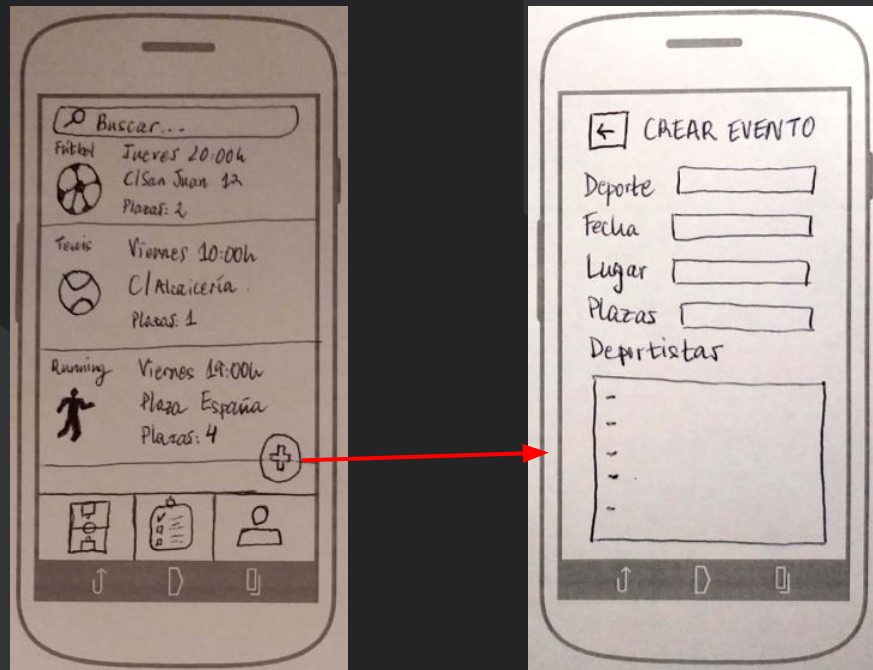 Buscar...
Fútbol
Jueves 20:00h
C/San Juan 12
Plazas: 2
Tenis
Viernes 10:00h
C/Alcaicería.
Plazas: 1
Running
Viernes 19:00h
Plaza España
Plazas: 4
CREAR EVENTO
Deporte
Fecha
Lugar
Plazas
Deportistas
-
-
-
-
-